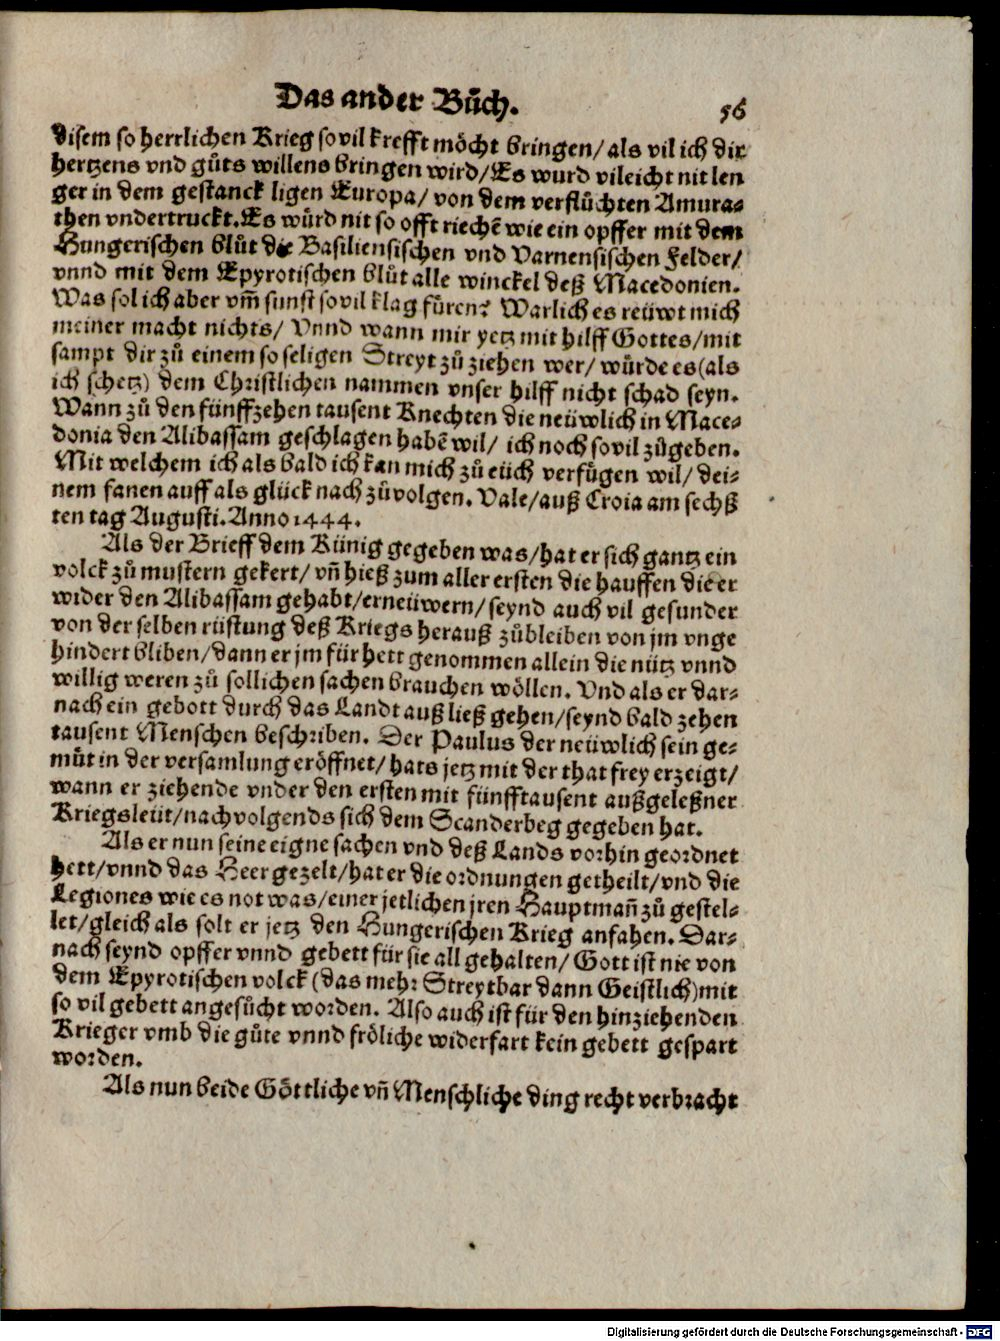 Das ander Bůch. 56
disem so herrlichen Krieg so vil krefft möcht bringen/ als vil ich dir
hertzens vnd gůts willens bringen wird/ Es wurd vileicht nit len
ger in dem gestanck ligen Europa/ von dem verflůchten Amura⸗
then vndertruckt. Es wůrd nit so offt riechē wie ein opffer mit dem
Hungerischen blůt die Basiliensischen vnd Varnensischen Felder/
vnnd mit dem Epyrotischen blůt alle winckel deß Macedonien.
Was sol ich aber vm̄ sunst so vil klag fůren? Warlich es reüwt mich
meiner macht nichts/ Vnnd wann mir yetz mit hilff Gottes/ mit
sampt dir zů einem so seligen Streyt zů ziehen wer/ würde es (als
ich schetz) dem Christlichen nammen vnser hilff nicht schad seyn.
Wann zů den fünffzehen tausent Knechten die neüwlich in Mace⸗
donia den Alibassam geschlagen habē wil/ ich noch so vil zůgeben.
Mit welchem ich als bald ich kan mich zů eüch verfügen wil/ dei⸗
nem fanen auff als glück nach zůvolgen. Vale/ auß Croia am sechß
ten tag Augusti. Anno 1444.
Als der Brieff dem Künig gegeben was/ hat er sich gantz ein
volck zů mustern gekert/ vn̄ hieß zum aller ersten die hauffen die er
wider den Alibassam gehabt/ erneüwern/ seynd auch vil gesunder
von der selben rüstung deß Kriegs herauß zůbleiben von jm vnge
hindert bliben/ dann er jm für hett genommen allein die nütz vnnd
willig weren zů sollichen sachen brauchen wöllen. Vnd als er dar⸗
nach ein gebott durch das Landt auß ließ gehen/ seynd bald zehen
tausent Menschen beschriben. Der Paulus der neüwlich sein ge⸗
můt in der versamlung eröffnet/ hats jetz mit der that frey erzeigt/
wann er ziehende vnder den ersten mit fünfftausent außgeleßner
Kriegsleüt/ nachvolgends sich dem Scanderbeg gegeben hat.
Als er nun seine eigne sachen vnd deß Lands vorhin geordnet
hett/ vnnd das Heer gezelt/ hat er die ordnungen getheilt/ vnd die
Legiones wie es not was/ einer jetlichen jren Hauptman̄ zů gestel⸗
let/ gleich als solt er jetz den Hungerischen Krieg anfahen. Dar⸗
nach seynd opffer vnnd gebett für sie all gehalten/ Gott ist nie von
dem Epyrotischen volck (das mehr Streytbar dann Geistlich) mit
so vil gebett angesůcht worden. Also auch ist für den hinziehenden
Krieger vmb die gůte vnnd fröliche widerfart kein gebett gespart
worden.
Als nun beide Göttliche vn̄ Menschliche ding recht verbracht
Digitalisierung gefördert durch die Deutsche Forschungsgemeinschaft - DFG